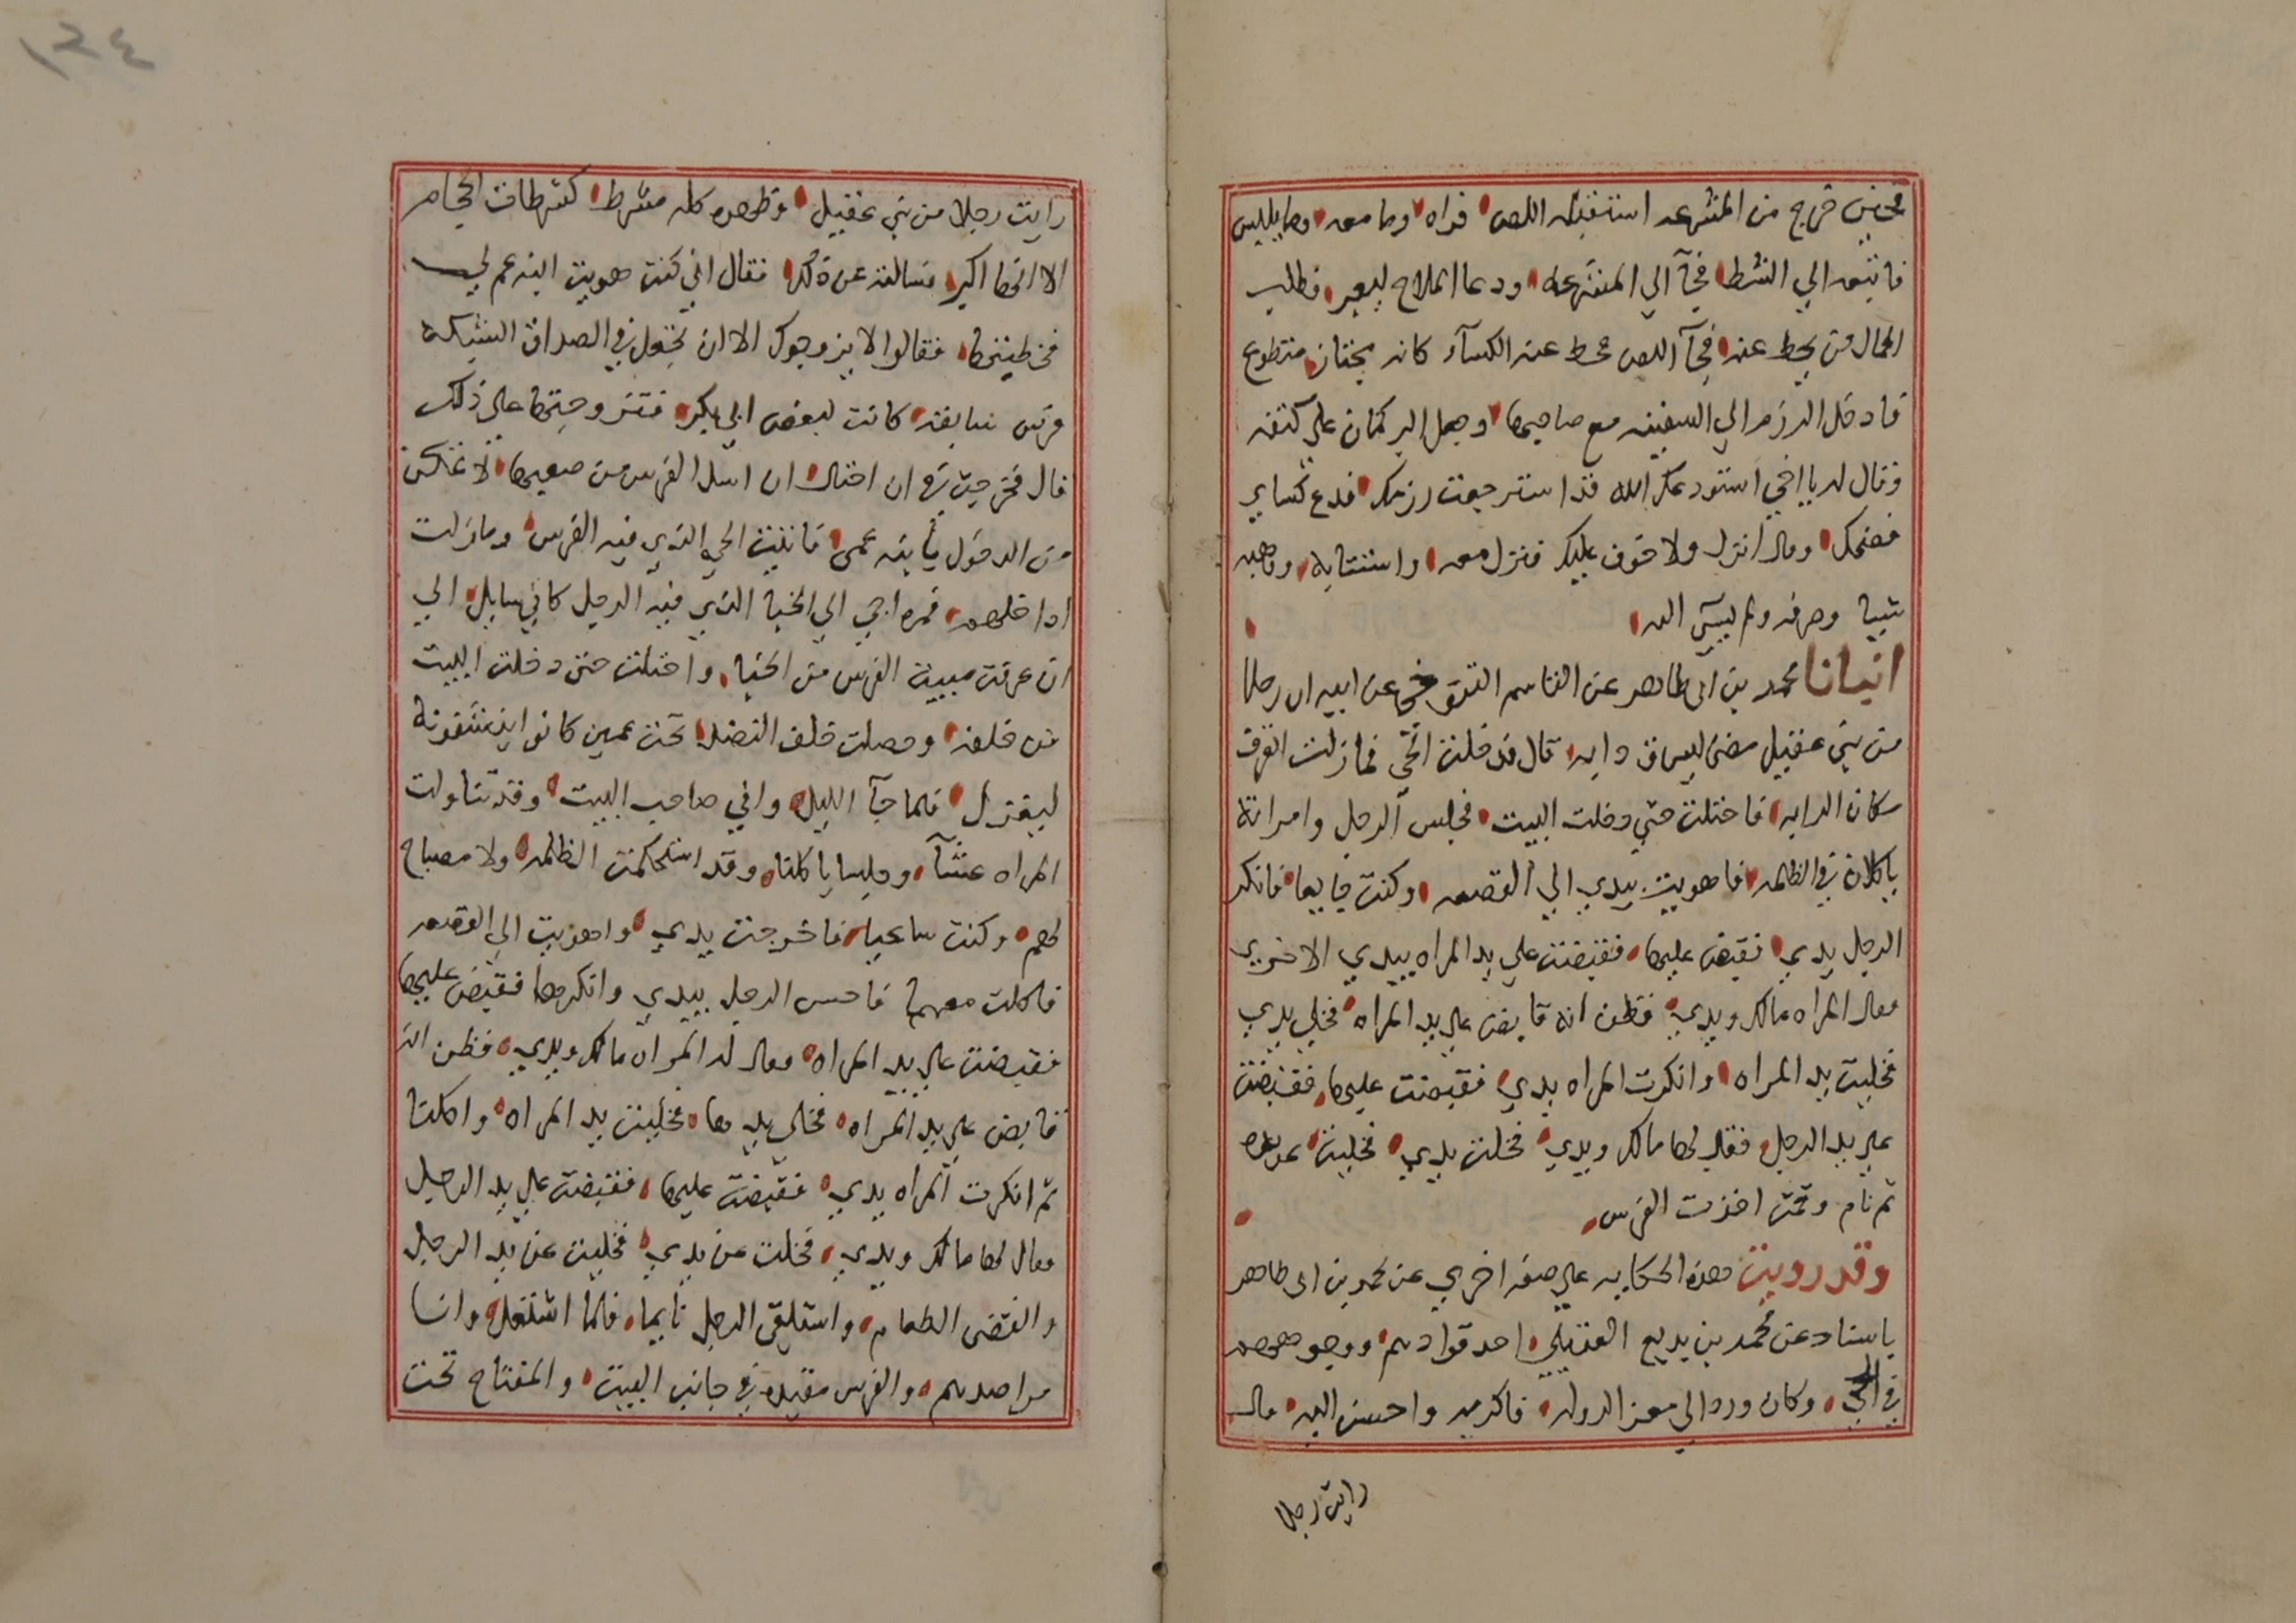 فحين خرج من المشرعه استقبله اللص فراه وما معه وما يلبس
فاتبعه الي الشط فجآ الي المشرعه ودعا الملاح ليعبر فطلب
الحمال من يحط عنه فجآ اللص فحط عنه الكسآء كانه مجتاز متطوع
فادخل الرزمه الي السفينه مع صاحبها وجعل البركان علي كتفه
وقال له يا اخي استودعك الله قد استرجعت رزمك فدع كساي
فضحك وقال انزل ولا خوف عليك فنزل معه واستتابه ووهبه
شيا وصرفه ولم يسي اليه
انبانا محمد بن ابي طاهر عن القاسم التنوخي عن ابيه ان رجلا
من بني عقيل مضي ليسرق دابه قال فدخلت الحي فما زلت اتعرف
مكان الدابه فاحتلت حتي دخلت البيت فجلس الرجل وامراته
ياكلان في الظلمه فاهويت بيدي الي القصعه وكنت جايعا فانكر
الرجل يدي فقبض عليها فقبضت علي يد المراه بيدي الاخري
فقالت المراه مالك ويدي فظن انه قابض علي يد المراه فخلي يدي
فخليت يد المراه وانكرت المراه يدي فقبضت عليها فقبضت
علي يد الرجل فقال لها مالك ويدي فخلت يدي فخليت عن يده
ثم نام وقمت اخذت الفرس
وقد رويت هذه الحكايه علي صفه اخري عن محمد بن ابي طاهر
باسناد عن محمد بن بديع العقيلي احد قوادهم ووجوههم
في الحي وكان ورد الي معز الدوله فاكرمه واحسن اليه قال
رايت رجلا
١٣٤
رايت رجلا من بني عقيل وظهره كله مشرط كشرطات الحجام
الا انها اكبر فسالته عن ذلك فقال اني كنت هويت ابنه عم لي
فخطبتها فقالوا لا يزوجوك الا ان تجعل في الصداق الشبكه
فرس سابقه كانت لبعض ابي بكر فتزوجتها علي ذلك
قال فخرجت في ان احتال ان اسل الفرس من صاحبها لاتمكن
من الدخول بابنه عمي فاتيت الحي الذي فيه الفرس وما زلت
اداخلهم فمره اجي الي الخبا الذي فيه الرجل كاني سايل الي
ان عرفت مبيت الفرس من الخبا واحتلت حتى دخلت البيت
من خلفه وحصلت خلف النضد تحت عهن كانوا ينشفونه
ليغزل فلما جآ الليل وافي صاحب البيت وقد تناولت
المراه عشآ وجلسا ياكلنا وقد استحكمت الظلمه ولا مصباح
لهم وكنت ساغبا فاخرجت يدي واهويت الي القصعه
فاكلت معهما فاحس الرجل بيدي وانكرها فقبض عليها
فقبضت علي يد المراه فقالت له المراه مالك ويدي فظن انه
قابض علي يد المراه فخلي يدها فخليت يد المراه واكلنا
ثم انكرت المراه يدي فقبضت عليها فقبضت علي يد الرجل
فقال لها مالك ويدي فخلت عن يدي فخليت عن يد الرجل
وانقضي الطعام واستلقي الرجل نايما فلما اشتغل وانا
مراصدهم والفرس مقيده في جانب البيت والمفتاح تحت